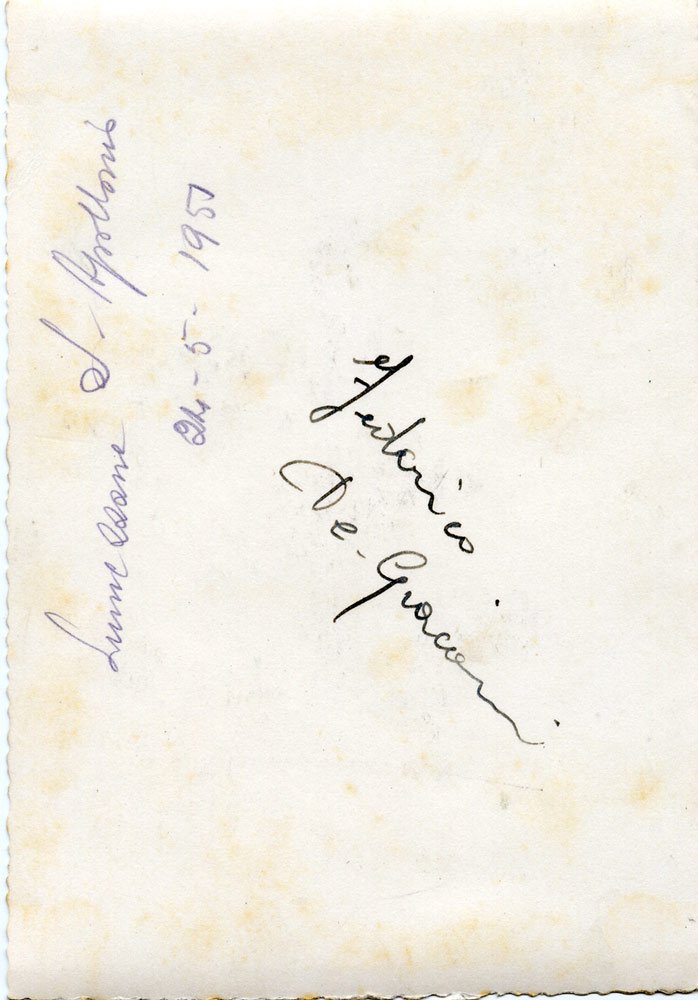 Lumezzane S. Apollonio
24-5-1951
Federico
De-Giacomi